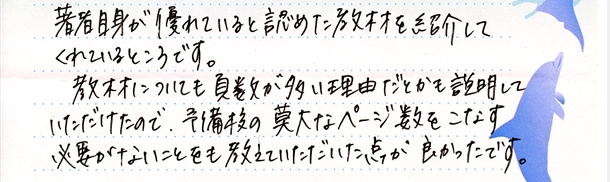 著者自身が優れていると認めた教材を紹介して
くれているところです。
教材についても頁数が多い理由だとかも説明して
いただけたので、予備校の莫大なページ数をこなす
必要がないことをも教えていただいた点が良かったです。